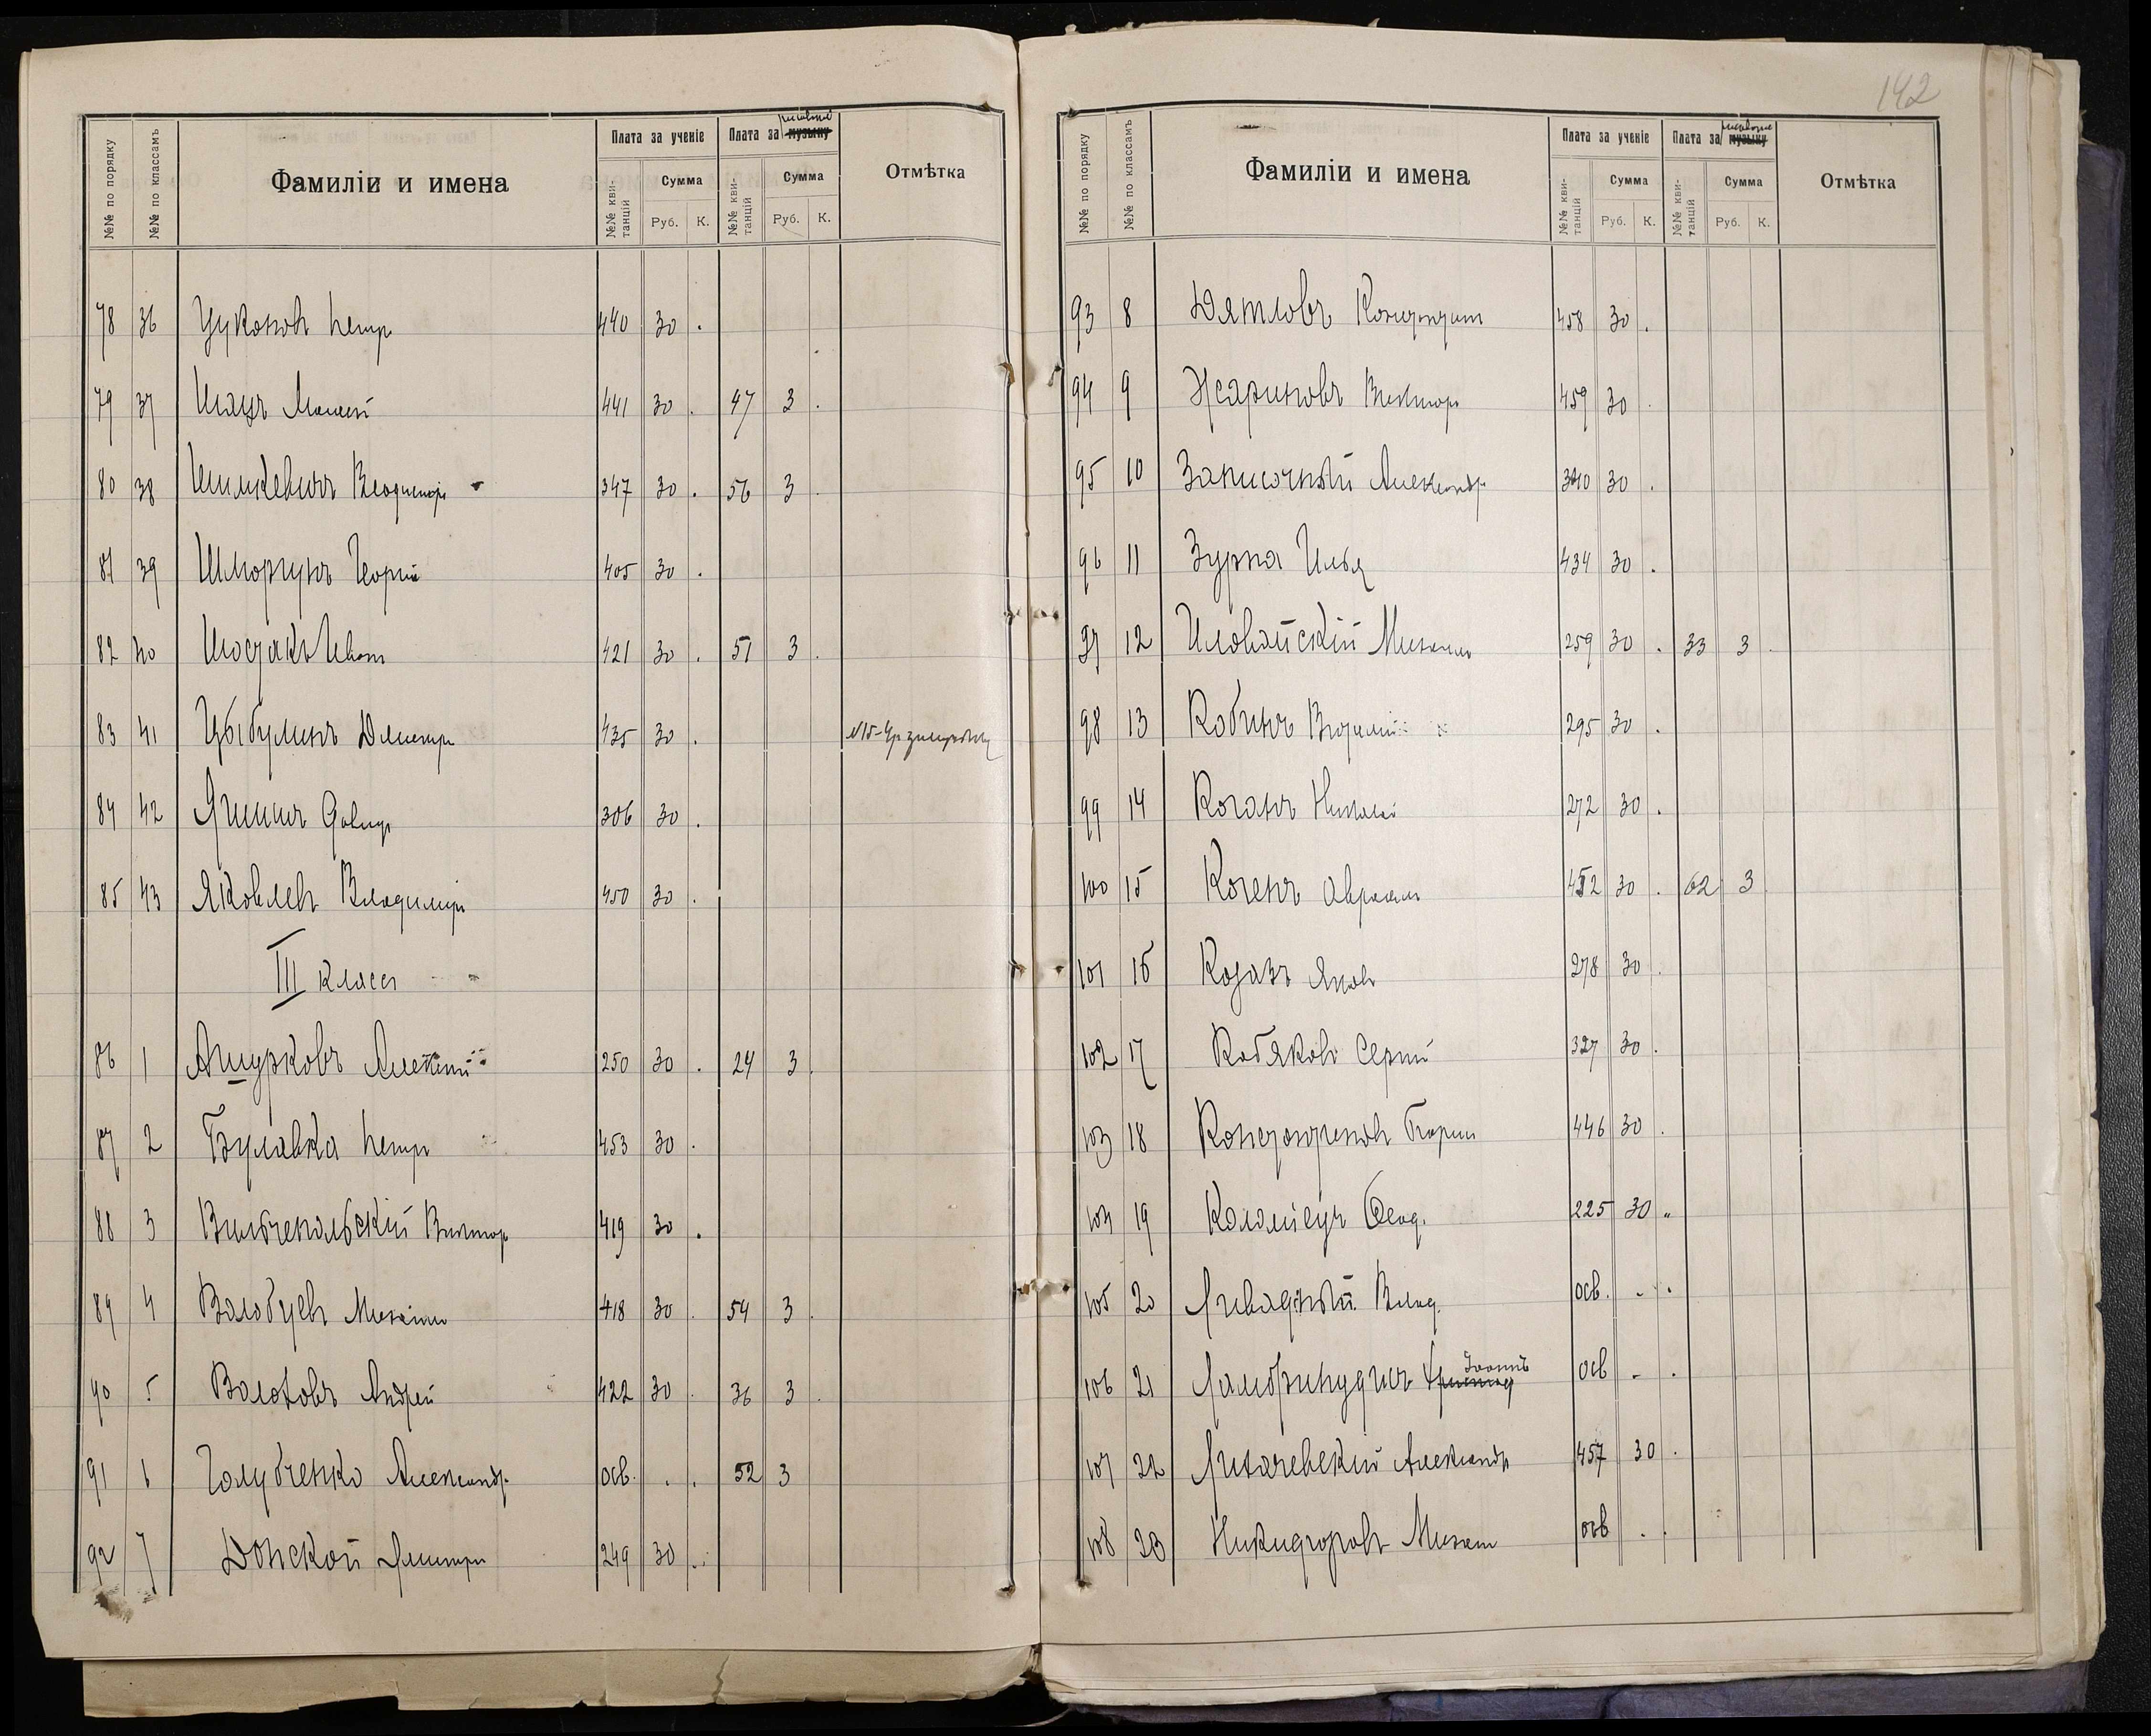 142
№№ по порядку №№ по классамъ Фамиліи и имена Плата за ученіе Плата за рисованіе музыку Отмѣтка
№№ квитанцій Сумма №№ квитанцій Сумма
Руб. К. Руб. К.
78 36 Цуканов Петр 440 30 .
79 37 Шацъ 441 30 . 47 3 .
80 38 Шимкевичъ Владимир 347 30 . 56 3 .
81 39 Шморгунъ Георгій 405 30 .
82 40 Шостакъ Иван 421 30 . 51 3 .
83 41 Цыбулинъ Дмитр 435 30 . №15-4р
84 42 Давид 306 30 .
85 43 Яковлев Владимир 450 30 .
III класс
86 1 Ашурковъ Алексѣй 250 30 . 24 3 .
87 2 Булавка Петр 453 30 .
88 3 Вильчепольскій Виктор 419 30 .
89 4 Волобуев Михаил 418 30 . 54 3 .
90 5 Волоховъ Андрей 422 30 . 36 3 .
91 6 Голубченко Александр. осв. . . 52 3
92 7 Донской Дмитри 249 30 .
№№ по порядку №№ по классамъ Фамиліи и имена Плата за ученіе Плата за рисованіе музыку Отмѣтка
№№ квитанцій Сумма №№ квитанцій Сумма
Руб. К. Руб. К.
93 8 Дятловъ 458 30 .
94 9 Жариковъ Виктор 459 30 .
95 10 Записочный Александр. 340 30 .
96 11 Зурна Илья 434 30 .
97 12 Иловайскій Михаил 259 30 . 33 3 .
98 13 Кобинъ 295 30 .
99 14 Коганъ Николай 272 30 .
100 15 Когенъ Авраам 452 30 . 62 3 .
101 16 Яков 278 30 .
102 17 Кобяков Сергій 327 30 .
103 18 446 30 .
104 19 Коломіецъ Ѳеод. 225 30 "
105 20 Ливадный Влад. осв. - .
106 21 осв - .
107 22 Лихачевскій Александр 457 30 .
108 23 Никифоров Михаил осв . .